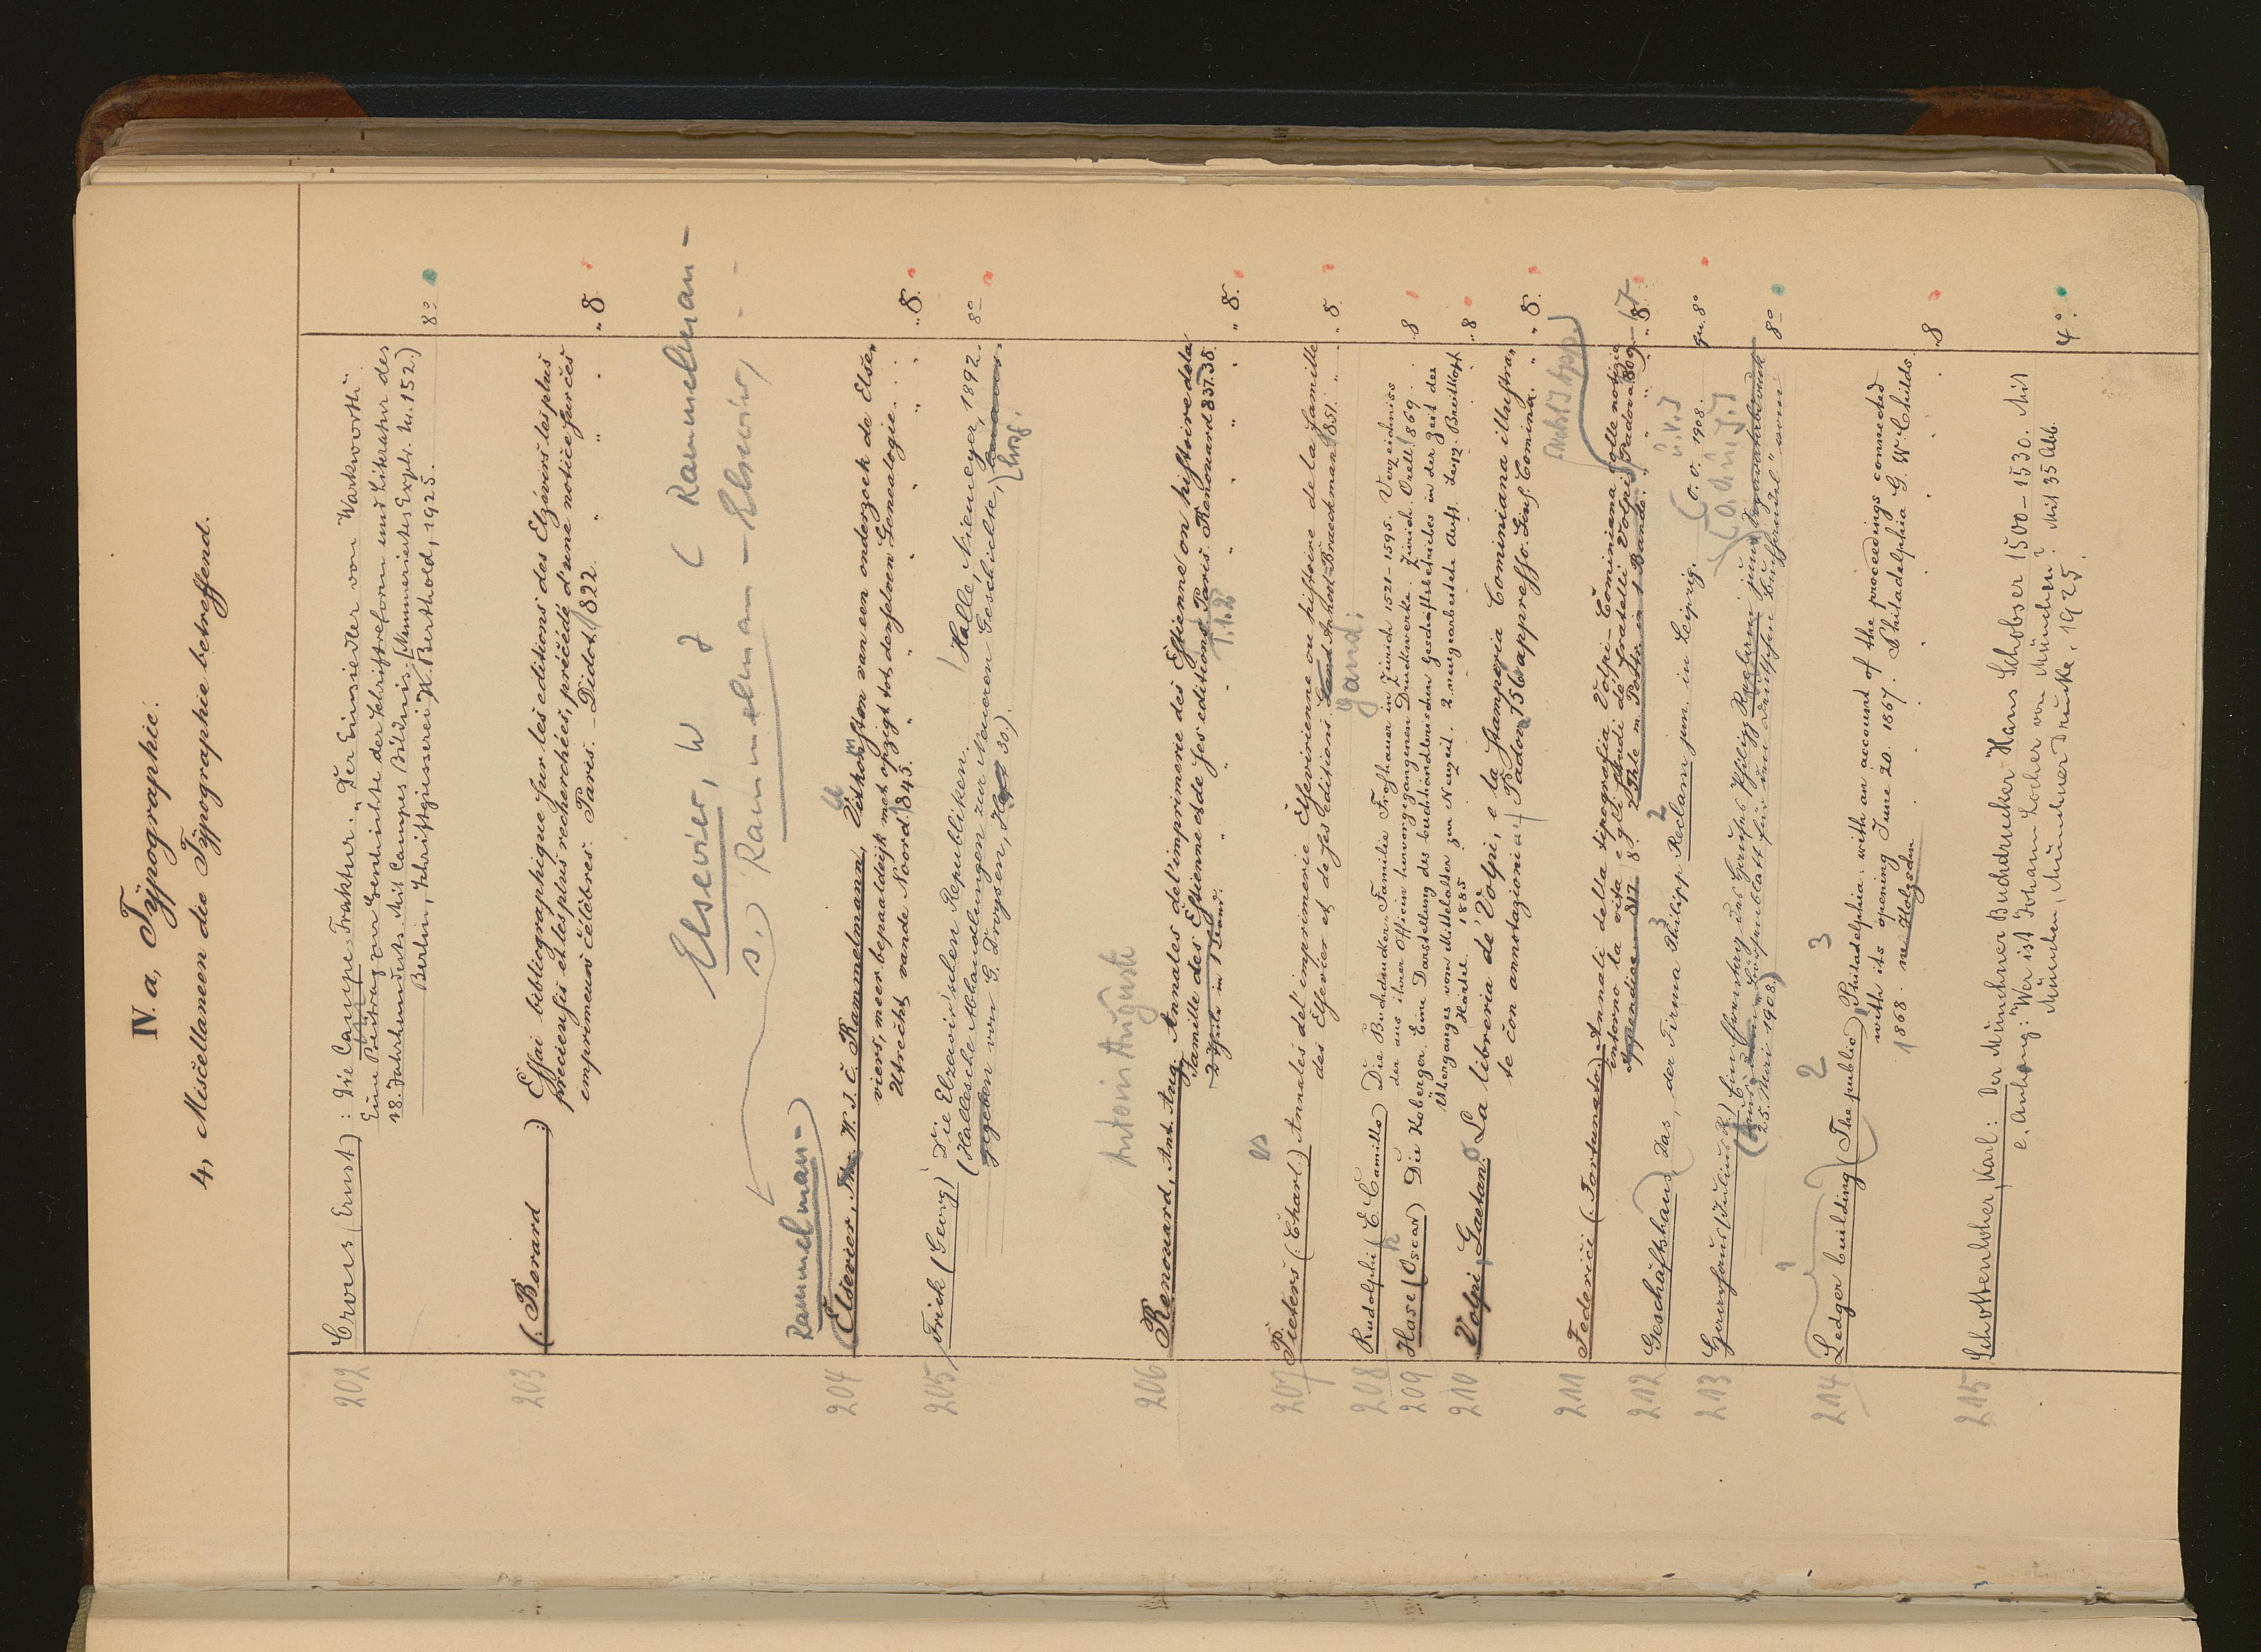 IV. a, Typographie.
4, Miscellaneen die Typographie betreffend.
202 Crous (Ernst): Die Campe-Fraktur. „Der Einsiedler von Warkworth“.
Eine Beitrag zur Geschichte der Schriftreform und Literatur des
18. Jahrhunderts. Mit Campes Bildnis. [Nummeriertes Expl. N. 152.)
Berlin, Schriftgiesserei H. Berthold, 1925. 8°
203 (: Berard :) Essai bibliographique sur les editions des Elzévirs les plus
precieuses et les plus recherchées, précédé d'une notice sur ces
imprimeurs célèbres. Paris. – Didot. 1822. „ 8.
Elsevier, W J C Rammelman –
s. Rammelman – Elsevier,
Rammelman –
204 (Elsevier, W. J. C. Rammelmann, Uitkomsten van een onderzoek de Else„
viers, meer bepaaldelijk met opzigt tot derzelven Genealogie.
Utrecht van de Noord. 1845. „ 8.
205 Frick (Georg) Die Elzevir'schen Republiken. Halle, Niemeyer, 1892. 8°
(Hallesche Abhandlungen zur Neueren Geschichte, hrsg.
von G. Droysen, Heft 30).
Antoin Auguste
206 Renouard, Ant. Aug. Annales de l'imprimerie des Estienne on histoire de la
famille des Estienne et de ses editions. Paris. Renouard 837.38. „ 8.
2 Thele in 1 Band. T. 1. 2.
207 Pieters (: Charl :) Annales de l'imprimerie Elsevirienne ou histoire de la famille
des Elsevier et de ses Editions. Gand. Annoot-Braeckman 1851. „ 8.
Gand:
208 Rudolphi (E. Camillo) Die Buchdrucker-Familie Froschauer in Zürich 1521–1595. Verzeichniss
der aus ihrer Officin hervorgegangenen Druckwerke. Zürich. Orell. 1869. 8
209 Hase (Oscar) Die Koberger. Eine Darstellung des buchhändlerischen Geschäftsbetriebes in der Zeit des
Überganges vom Mittelalter zur Neuzeit. 2. neugearbeitete Aufl. Leipz. Breitkopf
Härtel. 1885 „ 8
210 Volpi, Gaetano. La libreria de' Volpi, e la stamperia Cominiana illustra„
te con annotazioni. Padova 756 appresso. Gius. Comino. „ 8.
211 Federici (: Fortunato :) Annali della tipografia Volpi-Cominiana colle notizie
intorno la vita e gli studi de' fratelli Volpi. Padova 809–17
Appendice 817. 8. 2 Thle in 1 Bande. „ 8.
212 Geschäftshaus, Das, der Firma Philipp Reclam jun. in Leipzig. (o. O. 1908. qu. 8°
213
25. Mai 1908.) 8°
214 Ledger building (The public), Philadelphia: with an account of the proceedings connected
with its opening June 20. 1867. Philadelphia G. W. Childs.
1868. m. Holzschn. 8
215 Schottenloher, Karl: Der Münchner Buchdrucker Hans Schobser 1500–1530. Mit
e. Anhang: Wer ist Johann Locher von München? Mit 35 Abb.
München, Münchner Drucke, 1925. 4°.